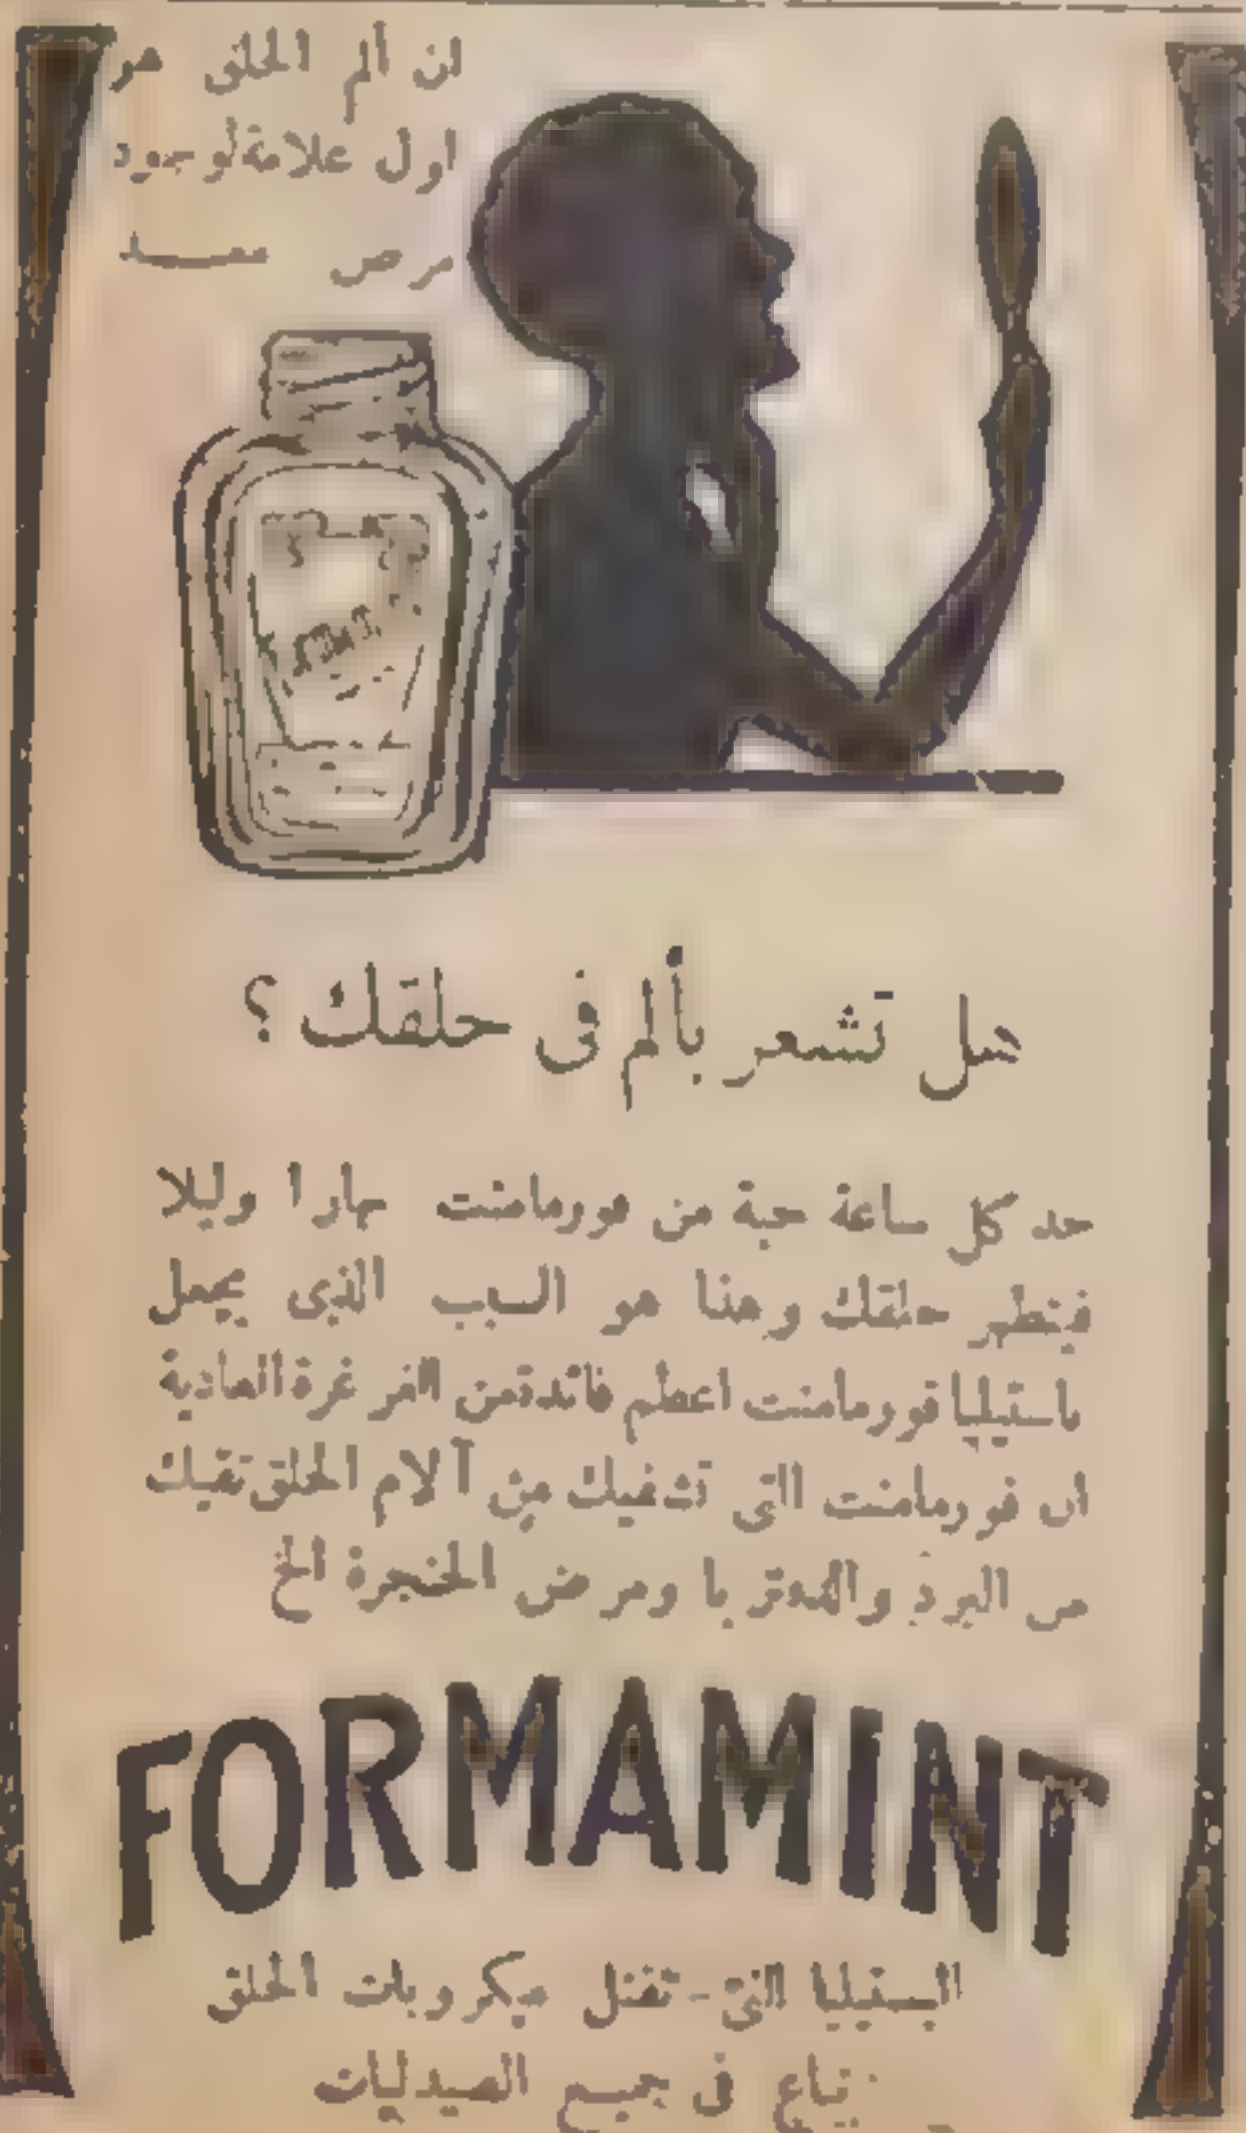 ان ألم الحلق هو
اول علامة لوجود
مرض معد
هل تشعر بألم فى حلقك ؟
خذ كل ساعة حبة من فورمامنت نهارا وليلا
فيتطهر حلقك وهذا هو السبب الذى يجعل
باستيليا فورمامنت اعظم فائدة من الغرغرة العادية
ان فورمامنت التى تشفيك من آلام الحلق تقيك
من البرد والدفتريا ومرض الحنجرة الخ
FORMAMINT
البستيليا التى تقتل ميكروبات الحلق
تباع فى جميع الصيدليات